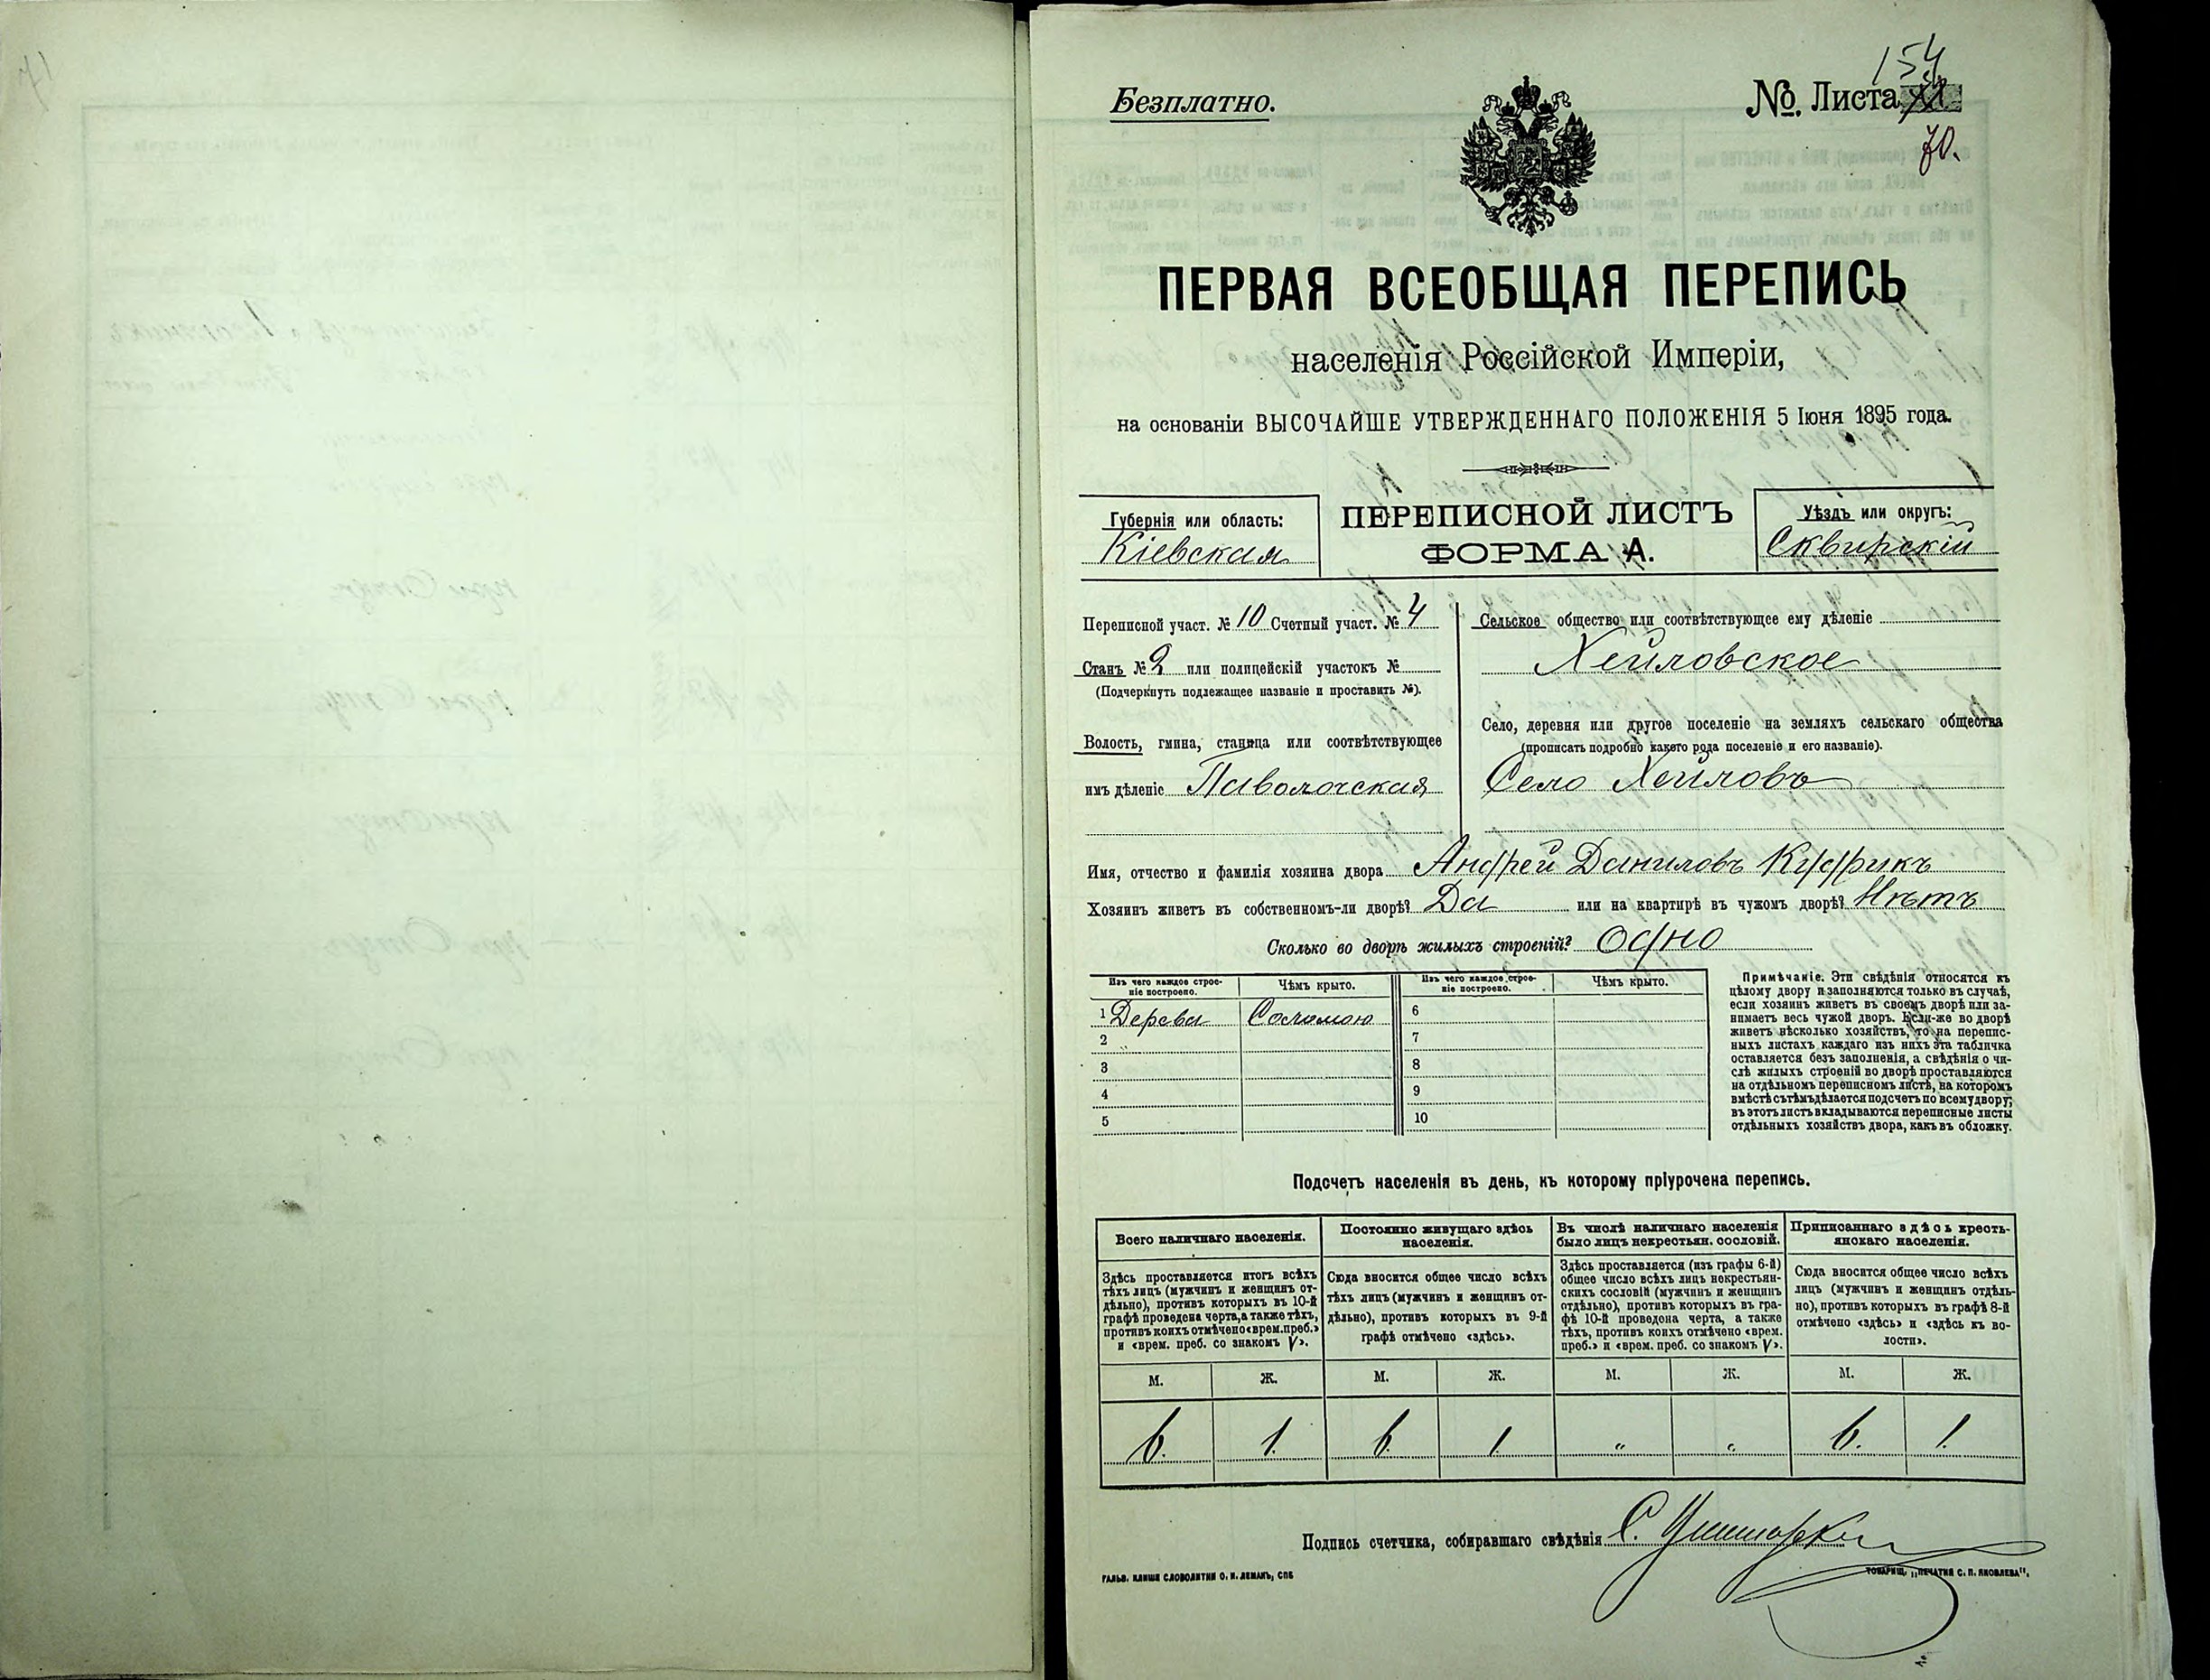 Безплатно.
№ Листа 154
70.
ПЕРВАЯ ВСЕОБЩАЯ ПЕРЕПИСЬ
населенія Россійской Имперіи,
на основаніи ВЫСОЧАЙШЕ УТВЕРЖДЕННАГО ПОЛОЖЕНІЯ 5 Іюня 1895 года.
Губернія или область:
Кіевская
ПЕРЕПИСНОЙ ЛИСТЪ
ФОРМА А.
Уѣздъ или округъ:
Сквирскій
Переписной участ. № 10 Счетный участ. № 4
Станъ № 2 или полицейскій участокъ №
(Подчеркнуть подлежащее названіе и проставить №).
Волость, гмина, станица или соотвѣтствующее
имъ дѣленіе Паволочская
Сельское общество или соотвѣтствующее ему дѣленіе
Хейловское
Село, деревня или другое поселеніе на земляхъ сельскаго общества
(прописать подробно какого рода поселеніе и его названіе).
Село Хейловъ
Имя, отчество и фамилія хозяина двора Андрей Даниловъ Кудрикъ
Хозяинъ живетъ въ собственномъ-ли дворѣ? Да или на квартирѣ въ чужомъ дворѣ? Нѣтъ
Сколько во дворѣ жилыхъ строеній? Одно
Изъ чего каждое строе-
ніе построено.
Чѣмъ крыто.
Изъ чего каждое строе-
ніе построено.
Чѣмъ крыто.
1 Дерева Соломою 6
2 7
3 8
4 9
5 10
Примѣчаніе. Эти свѣдѣнія относятся къ
цѣлому двору и заполняются только въ случаѣ,
если хозяинъ живетъ въ своемъ дворѣ или за-
нимаетъ весь чужой дворъ. Если-же во дворѣ
живетъ нѣсколько хозяйствъ, то на перепис-
ныхъ листахъ каждаго изъ нихъ эта табличка
оставляется безъ заполненія, а свѣдѣнія о чи-
слѣ жилыхъ строеній во дворѣ проставляются
на отдѣльномъ переписномъ листѣ, на которомъ
вмѣстѣ съ тѣмъ дѣлается подсчетъ по всему двору;
въ этотъ листъ вкладываются переписные листы
отдѣльныхъ хозяйствъ двора, какъ въ обложку.
Подсчетъ населенія въ день, къ которому пріурочена перепись.
Всего наличнаго населенія.
Здѣсь проставляется итогъ всѣхъ
тѣхъ лицъ (мужчинъ и женщинъ от-
дѣльно), противъ которыхъ въ 10-й
графѣ проведена черта, а также тѣхъ,
противъ коихъ отмѣчено «врем. преб.»
и «врем. преб. со знакомъ V».
Постоянно живущаго здѣсь
населенія.
Сюда вносится общее число всѣхъ
тѣхъ лицъ (мужчинъ и женщинъ от-
дѣльно), противъ которыхъ въ 9-й
графѣ отмѣчено «здѣсь».
Въ числѣ наличнаго населенія
было лицъ некрестьян. сословій.
Здѣсь проставляется (изъ графы 6-й)
общее число всѣхъ лицъ некрестьян-
скихъ сословій (мужчинъ и женщинъ
отдѣльно), противъ которыхъ въ гра-
фѣ 10-й проведена черта, а также
тѣхъ, противъ коихъ отмѣчено «врем.
преб.» и «врем. преб. со знакомъ V».
Приписаннаго здѣсь кресть-
янскаго населенія.
Сюда вносится общее число всѣхъ
лицъ (мужчинъ и женщинъ отдѣль-
но), противъ которыхъ въ графѣ 8-й
отмѣчено «здѣсь» и «здѣсь къ во-
лости».
М. Ж. М. Ж. М. Ж. М. Ж.
6. 1. 6. 1. " " 6. 1.
Подпись счетчика, собиравшаго свѣдѣнія С.
ГАЛЬВ. КЛИШЕ СЛОВОЛИТНИ О. И. ЛЕМАНЪ, СПБ
ТОВАРИЩ. „ПЕЧАТНЯ С. П. ЯКОВЛЕВА".